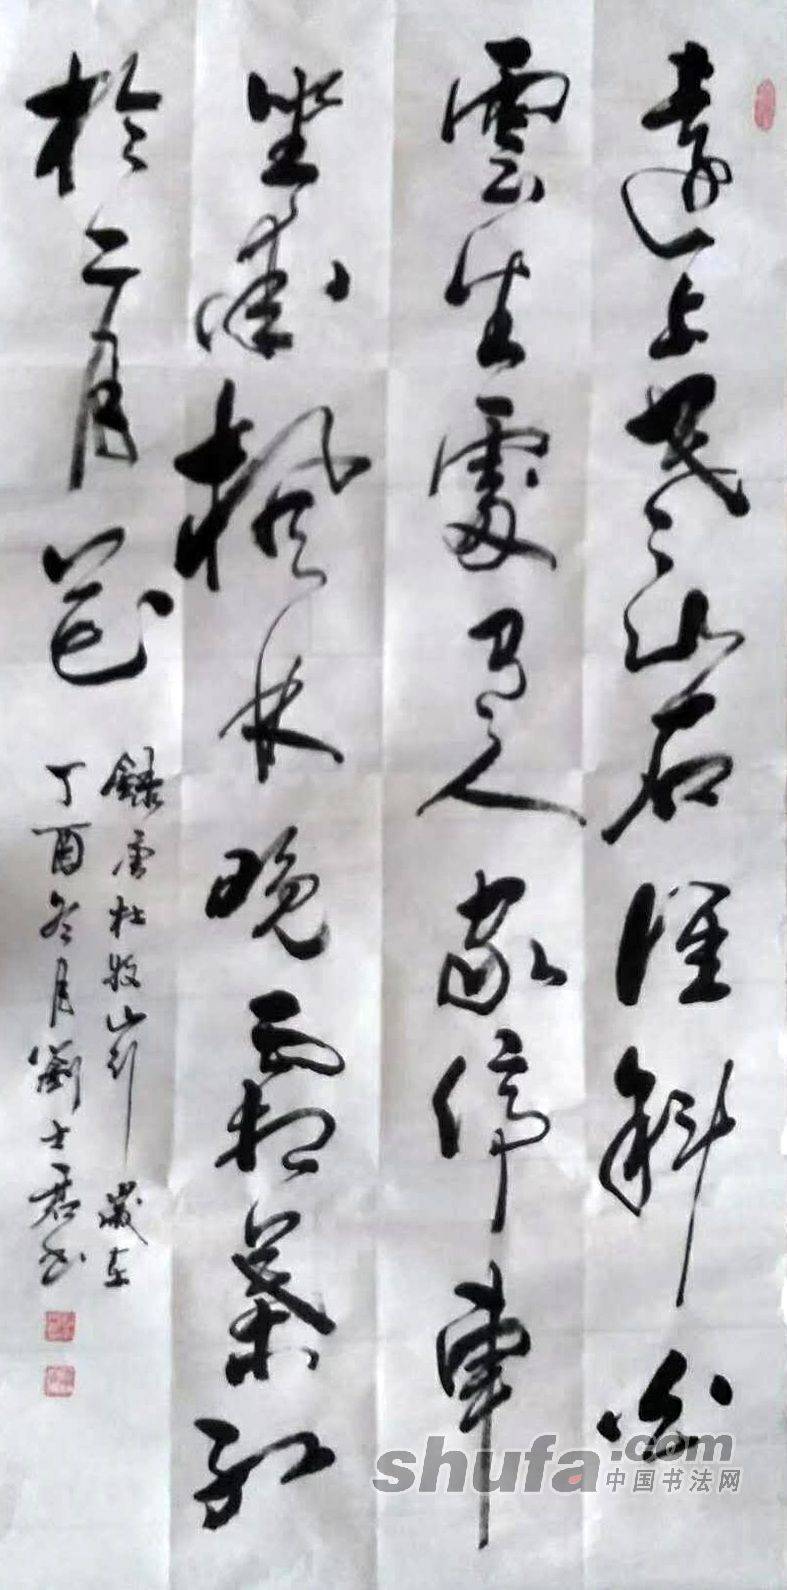 遠上寒山石徑斜白
雲生處有人家停車
坐愛楓林晚霜葉紅
於二月花
錄唐杜牧山行 歲在
丁酉冬月劉士君書
shufa.com
中国书法网